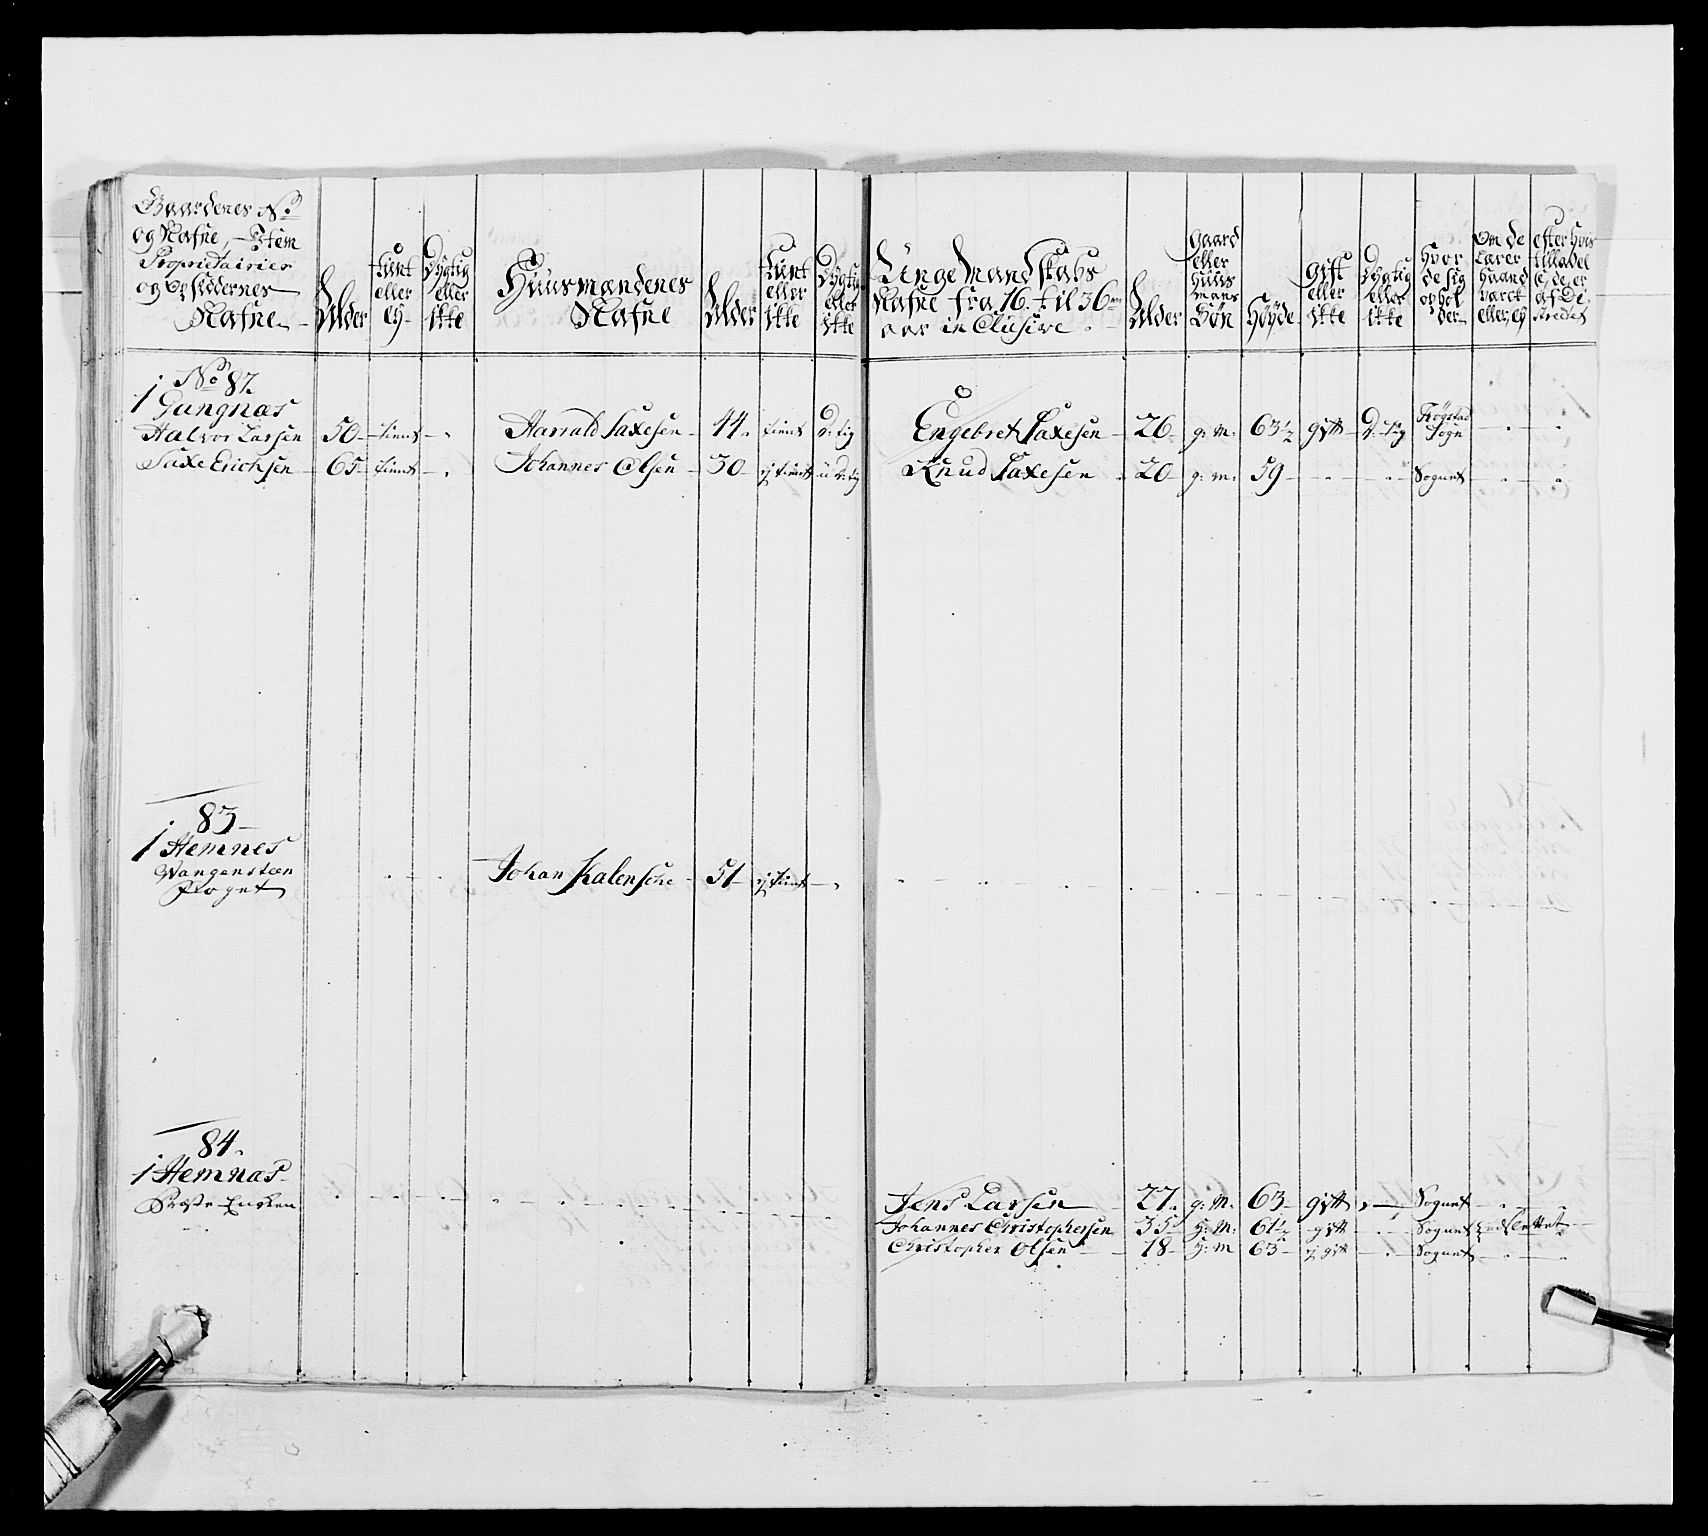 Gaardenes No
og Nafne, Item
Proprietairier
og Opsiddernes
Nafne
Alder
tient
eller
ey
Dygtig
eller
ikke
Huusmændenes
Nafne
Alder
tient
eller
ikke
Dygtig
eller
ikke
Unge Mandskabs
Nafne fra 16 til 36
aar inClusive
Alder
gaard
eller
huus
mans
Søn
Høyde
gift
eller
ikke
Dygtig
eller
ikke
Hvor
de sig
ophol
der
Om de
Lærer
haand
varck
eller ey
efter hvis
tilladel
se de er
af Di
strictet
No 87
1 Gangnæs
Halvor Larsen 50 tient
Harrald Saxesen 44 tient D:tig
Engebret Saxesen 26 g: m: 63½ gift D:tig Trøgstad Sogn
Saxe Erichsen 65 tient
Johannes Olsen 30 ej tient u D:tig
Knud Saxesen 20 g: m: 59 Sognet
83
1 Hemnes
Wangensteen
Foget
Johan Kalensche 51 ej tient
84
1 Hemnæs
Præste Encken
Jens Larsen 27 g: m: 63 gift Sognet
Johannes Christophersen 35 g: m: 61½ gift Sognet
Christopher Olsen 18 g: m 63 ej gift Sognet